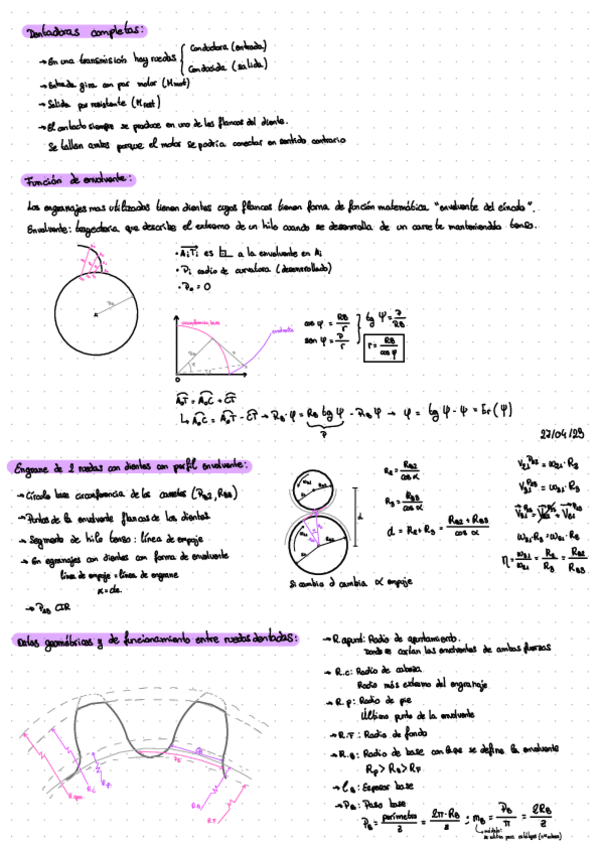 Dentadoras completas:
→ En una transmisión hay ruedas { Conductora (entrada)
Conducida (salida)
→ Entrada gira con par motor (Mmot)
→ Salida par resistente (Mrest)
→ El contacto siempre se produce en uno de los flancos del diente.
Se tallan ambos porque el motor se podría conectar en sentido contrario
Función de envolvente:
Los engranajes mas utilizados tienen dientes cuyos flancos tienen forma de función matemática "envolvente del círculo".
Envolvente: trayectoria que describe el extremo de un hilo cuando se desenrolla de un carrete manteniendolo tenso.
• AiTi es a la envolvente en Ai
• ρi radio de curvatura (desenrollado)
• ρo = 0
circunferencia base
evolvente
cos φ = RB/r
sen φ = ρ/r
tg φ = ρ/RB
r = RB/cos φ
AoT = AoC + CT
↳ AoC = AoT - CT → RB·φ = RB tg φ - RB φ → φ = tg φ - φ = Er(φ)
27/04/23
Engrane de 2 ruedas con dientes con perfil envolvente:
→ Círculo base circunferencia de los carretes (RB2, RB3)
→ Puntos de la envolvente flancos de los dientes
→ Segmento de hilo tenso: línea de empuje
→ En engranajes con dientes con forma de envolvente
línea de empuje = línea de engrane
α = cte.
→ P23 CIR
d
Si cambia d cambia α empuje
R2 = RB2/cos α
R3 = RB3/cos α
d = R2 + R3 = RB2 + RB3/cos α
Datos geométricos y de funcionamiento entre ruedas dentadas:
→ R.apunt: Radio de apuntamiento.
→ R.c: Radio de cabeza.
Radio más externo del engranaje
→ R.p: Radio de pie
Último punto de la envolvente
→ R.F: Radio de fondo
→ R.B: Radio de base con el que se define la envolvente
Rp > RB > RF
→ eB: Espesor base
→ PB: Paso base
PB = perímetro/z = 2π·RB/z ; mB = PB/π = 2RB/z